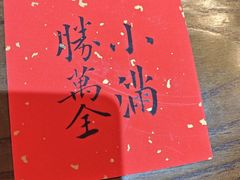 小滿
勝萬全